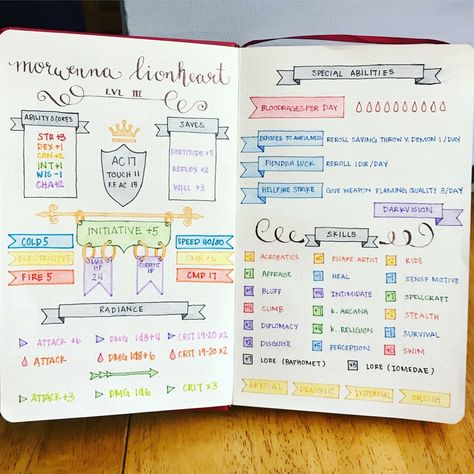 morwenna lionheart
LVL III
ABILITY SCORES
STR +3
DEX +1
CON +2
INT +1
WIS -1
CHA +2
AC 17
TOUCH 11
F.F. AC 15
SAVES
FORTITUDE +5
REFLEX +2
WILL +3
INITIATIVE +5
COLD 5
ELECTRICITY 5
FIRE 5
MAX HP
24
CURRENT HP
SPEED 40/30
CMB +6
CMP 17
RADIANCE
ATTACK +6 DMG 1d8+4 CRIT 19-20 x2
ATTACK DMG 1d8+6 CRIT 19-20 x2
ATTACK +3 DMG 1d6 CRIT x3
SPECIAL ABILITIES
BLOODRAGES PER DAY
EXPOSED TO AWFULNESS REROLL SAVING THROW V. DEMON 1/DAY
FIENDISH LUCK REROLL 1DIE/DAY
HELLFIRE STRIKE GIVE WEAPON FLAMING QUALITY 3/DAY
DARKVISION
SKILLS
ACROBATICS ESCAPE ARTIST RIDE
APPRAISE HEAL SENSE MOTIVE
BLUFF INTIMIDATE SPELLCRAFT
CLIMB K. ARCANA STEALTH
DIPLOMACY K. RELIGION SURVIVAL
DISGUISE PERCEPTION SWIM
LORE (BAPHOMET) LORE (IOMEDAE)
ABYSSAL DRACONIC INFERNAL ORCISH